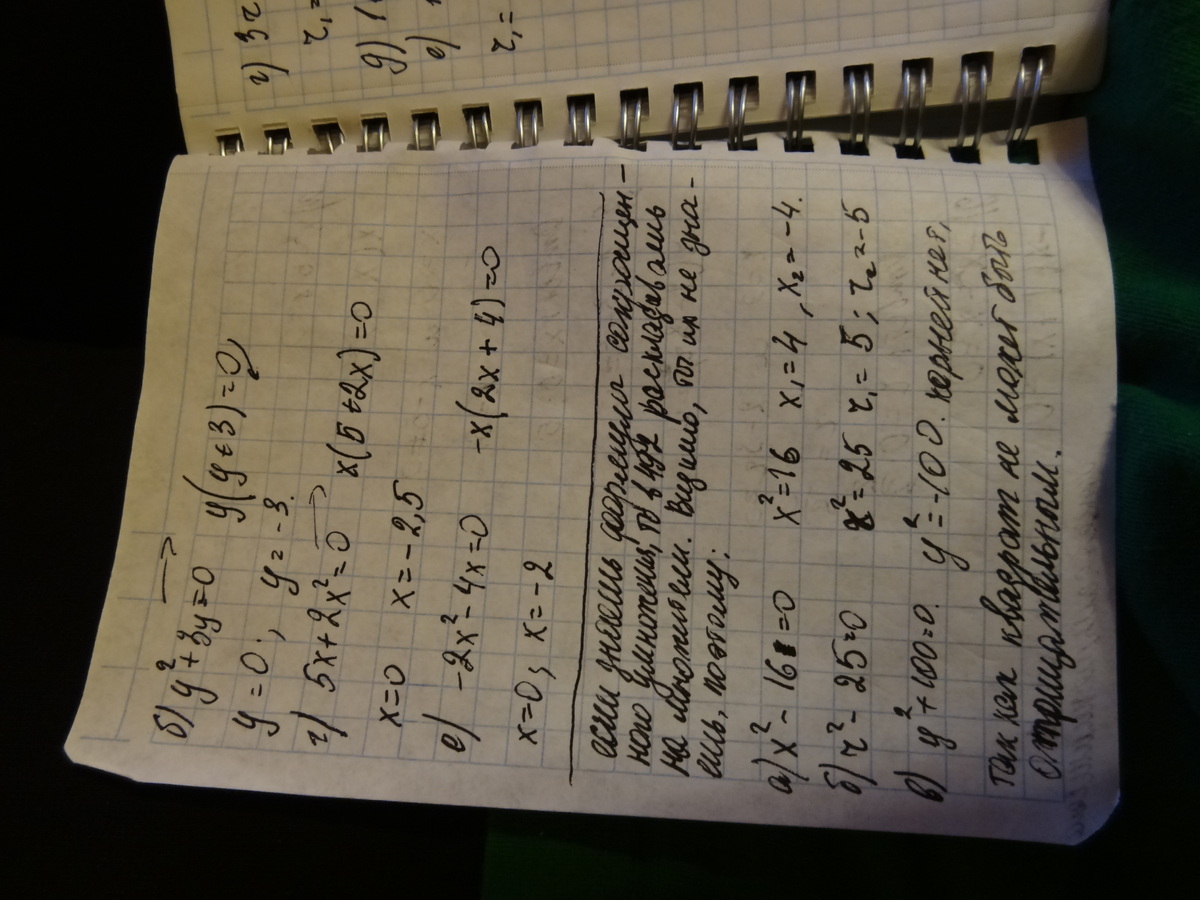 б) y²+3y=0 → y(y+3)=0,
y=0; y=-3.
г) 5x+2x²=0 → x(5+2x)=0
x=0 x=-2,5
е) -2x²-4x=0 -x(2x+4)=0
x=0, x=-2
если знаешь формулы сокращен-
ного умножения, то в № раскладываешь
на множители. Видимо, ты их не зна-
ешь, поэтому:
а) x²-16=0 x²=16 x₁=4, x₂=-4.
б) z²-25=0 z²=25 z₁=5; z₂=-5
в) y²+100=0. y²=-100. корней нет,
так как квадрат не может быть
отрицательным.
г) 3z
z₁=
д) 1
е)
z₁=